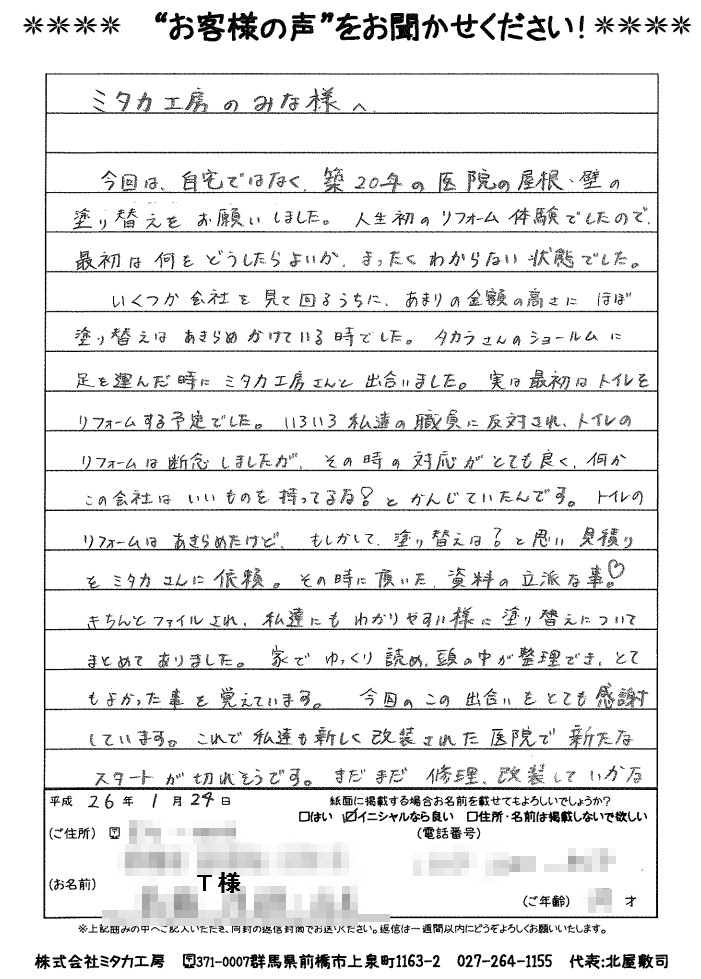 ＊＊＊＊ “お客様の声”をお聞かせください！＊＊＊＊
ミタカ工房のみな様へ
今回は、自宅ではなく、築20年の医院の屋根・壁の
塗り替えをお願いしました。人生初のリフォーム体験でしたので、
最初は何をどうしたらよいか、まったくわからない状態でした。
いくつか会社を見て回るうちに、あまりの金額の高さにほぼ
塗り替えはあきらめかけている時でした。タカラさんのショールムに
足を運んだ時にミタカ工房さんと出合いました。実は最初はトイレを
リフォームする予定でした。いろいろ私達の職員に反対され、トイレの
リフォームは断念しましたが、その時の対応がとても良く、何か
この会社はいいものを持ってるな？とかんじていたんです。トイレの
リフォームはあきらめたけど、もしかして、塗り替えは？と思い見積り
をミタカさんに依頼。その時に頂いた、資料の立派な事！♡
きちんとファイルされ、私達にもわかりやすい様に塗り替えについて
まとめてありました。家でゆっくり読め、頭の中が整理でき、とて
もよかった事を覚えています。今回のこの出合いをとても感謝
しています。これで私達も新しく改装された医院で新たな
スタートが切れそうです。まだまだ修理、改装していかな
平成 26年 1月 29日
紙面に掲載する場合お名前を載せてもよろしいでしょうか？
□はい ☑イニシャルなら良い □住所・名前は掲載しないで欲しい
(ご住所) 〒
(電話番号)
(お名前)
T様
(ご年齢) 才
※上記囲みの中へご記入いただき、同封の返信封筒でお送りください。返信は一週間以内にどうぞよろしくお願いいたします。
株式会社ミタカ工房 〒371-0007群馬県前橋市上泉町1163-2 027-264-1155 代表:北屋敷司